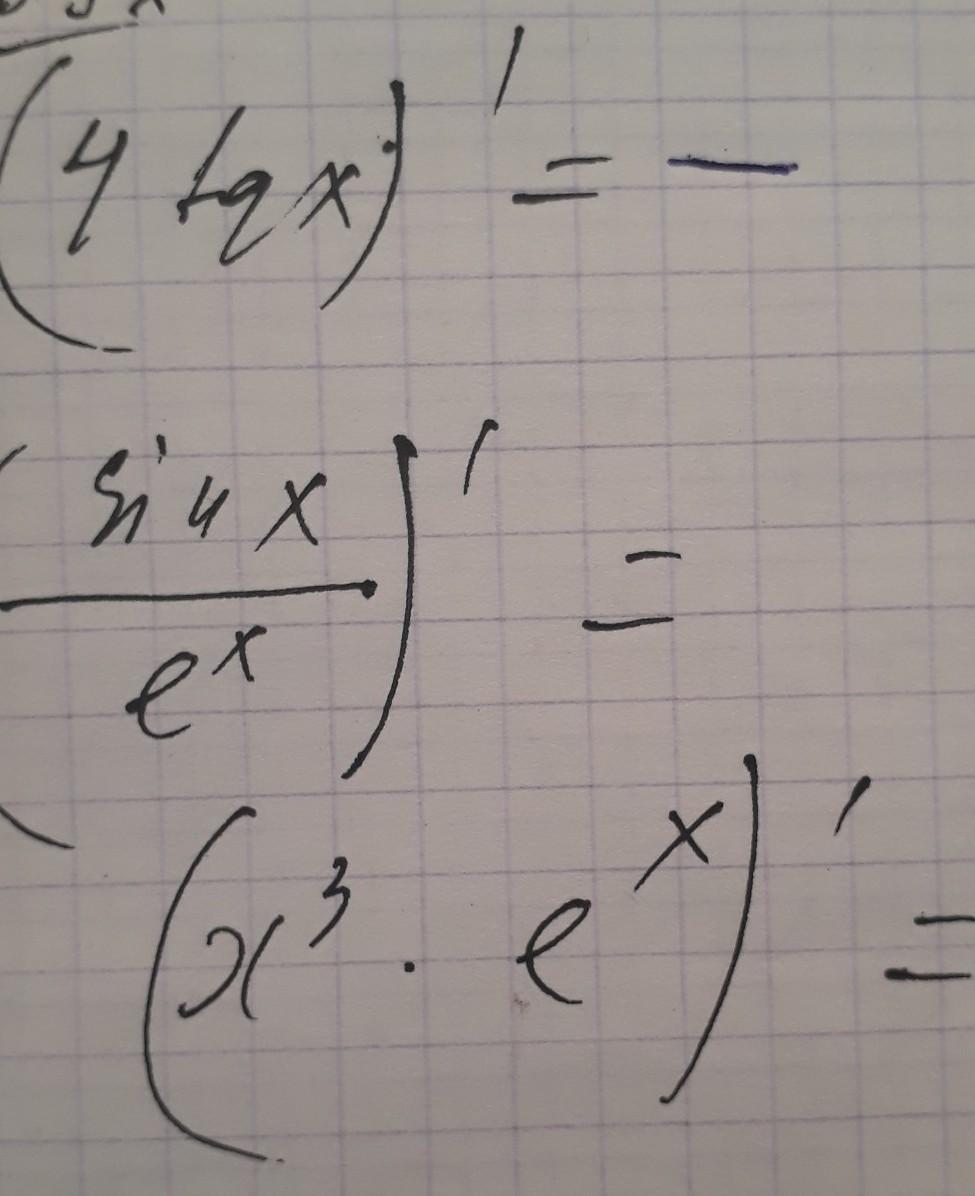 (4 tg x)' = —
(sin x / e^x)' =
(x³ · e^x)' =